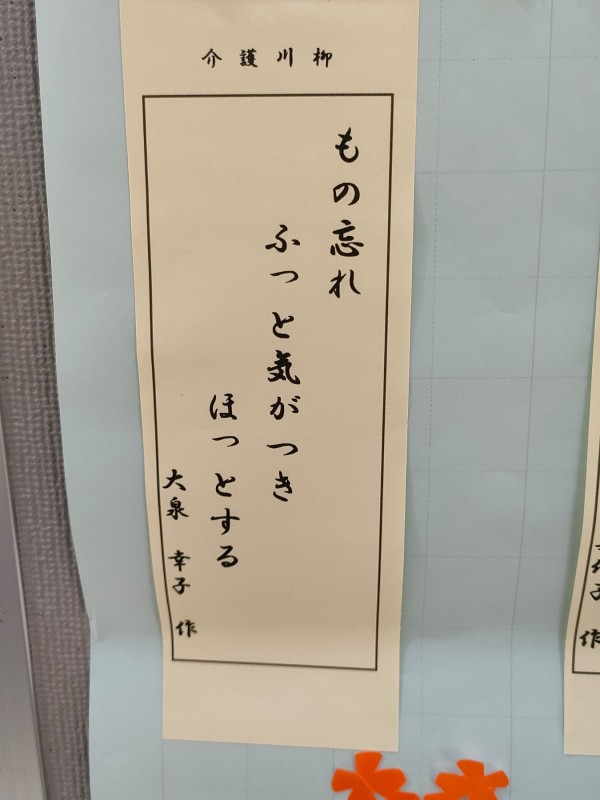 介護川柳
もの忘れ
ふっと気がつき
ほっとする
大泉 幸子 作
子 作